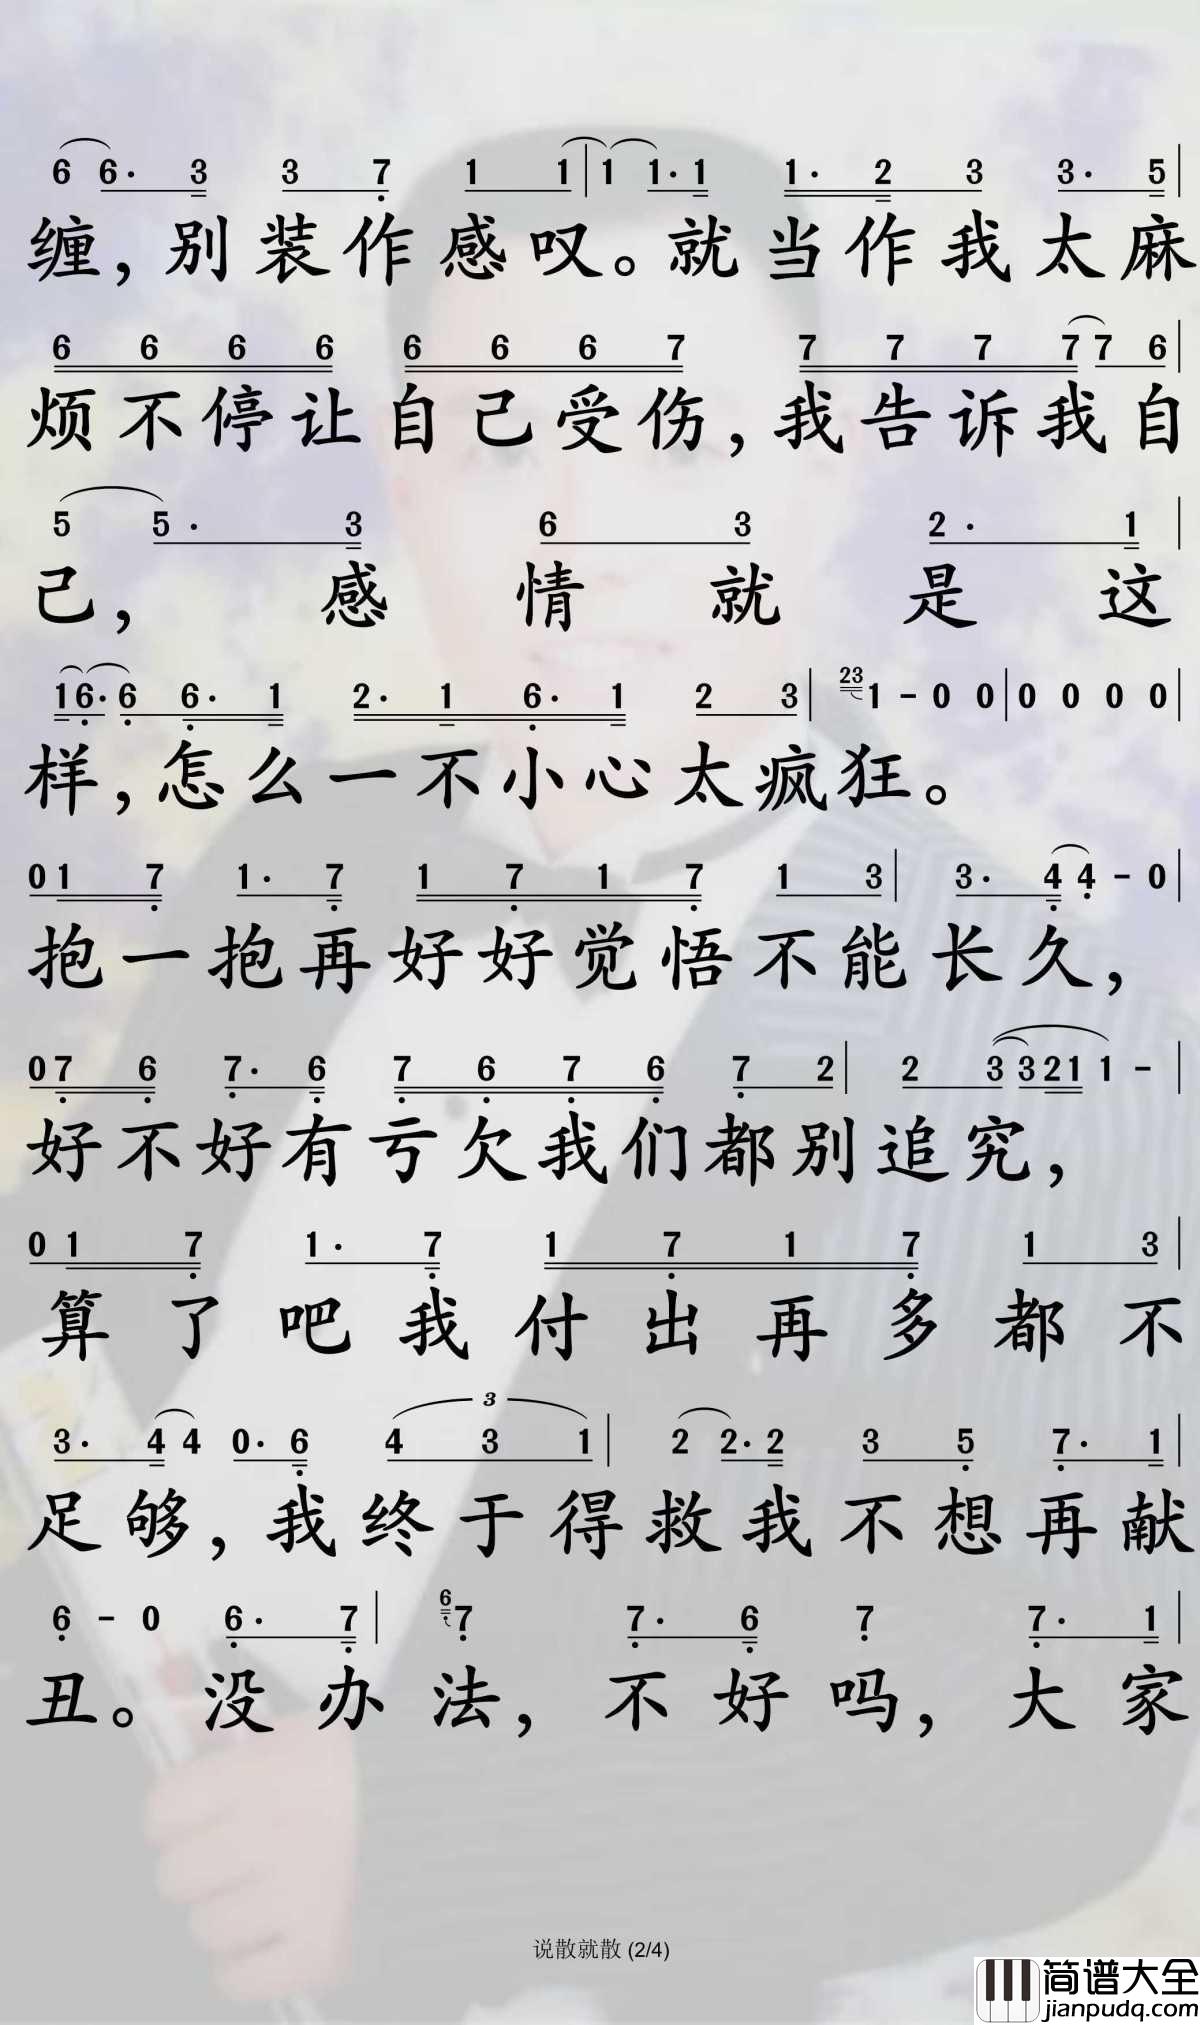 6 6· 3 3 7 1 1 | 1 1· 1 1· 2 3 3· 5 |
缠，别装作感叹。就当作我太麻
6 6 6 6 6 6 6 7 7 7 7 7 7 6 |
烦不停让自己受伤，我告诉我自
5 5· 3 6 3 2· 1 |
己，感情就是这
1 6· 6 6· 1 2· 1 6· 1 2 3 | 23 1 - 0 0 | 0 0 0 0 |
样，怎么一不小心太疯狂。
0 1 7 1· 7 1 7 1 7 1 3 | 3· 4 4 - 0 |
抱一抱再好好觉悟不能长久，
0 7 6 7· 6 7 6 7 6 7 2 | 2 3 3 2 1 1 - |
好不好有亏欠我们都别追究，
0 1 7 1· 7 1 7 1 7 1 3 |
算了吧我付出再多都不
3· 4 4 0· 6 3 4 3 1 | 2 2· 2 3 5 7· 1 |
足够，我终于得救我不想再献
6 - 0 6· 7 | 6 7 7· 6 7 7· 1 |
丑。没办法，不好吗，大家
说散就散 (2/4)
简谱大全
jianpudq.com